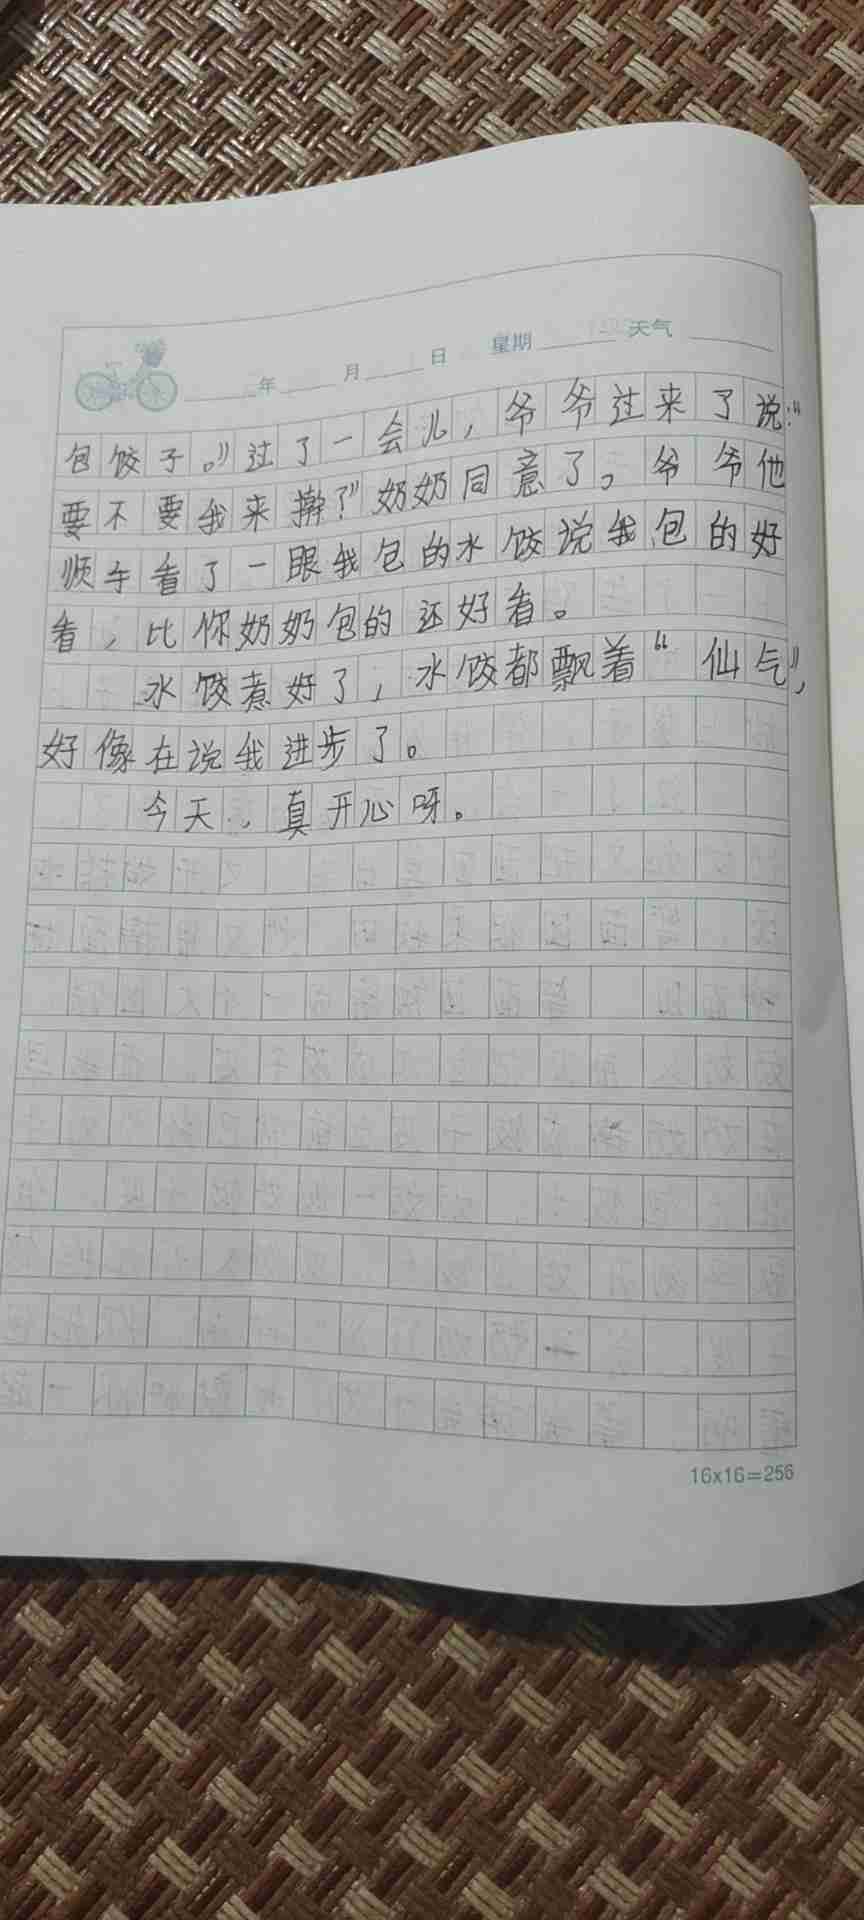 年 月 日 星期 天气
包饺子。”过了一会儿，爷爷过来了说：“
要不要我来擀？”奶奶同意了。爷爷他
顺手看了一眼我包的水饺说我包的好
看，比你奶奶包的还好看。
水饺煮好了，水饺都飘着“仙气”，
好像在说我进步了。
今天，真开心呀。
16x16=256